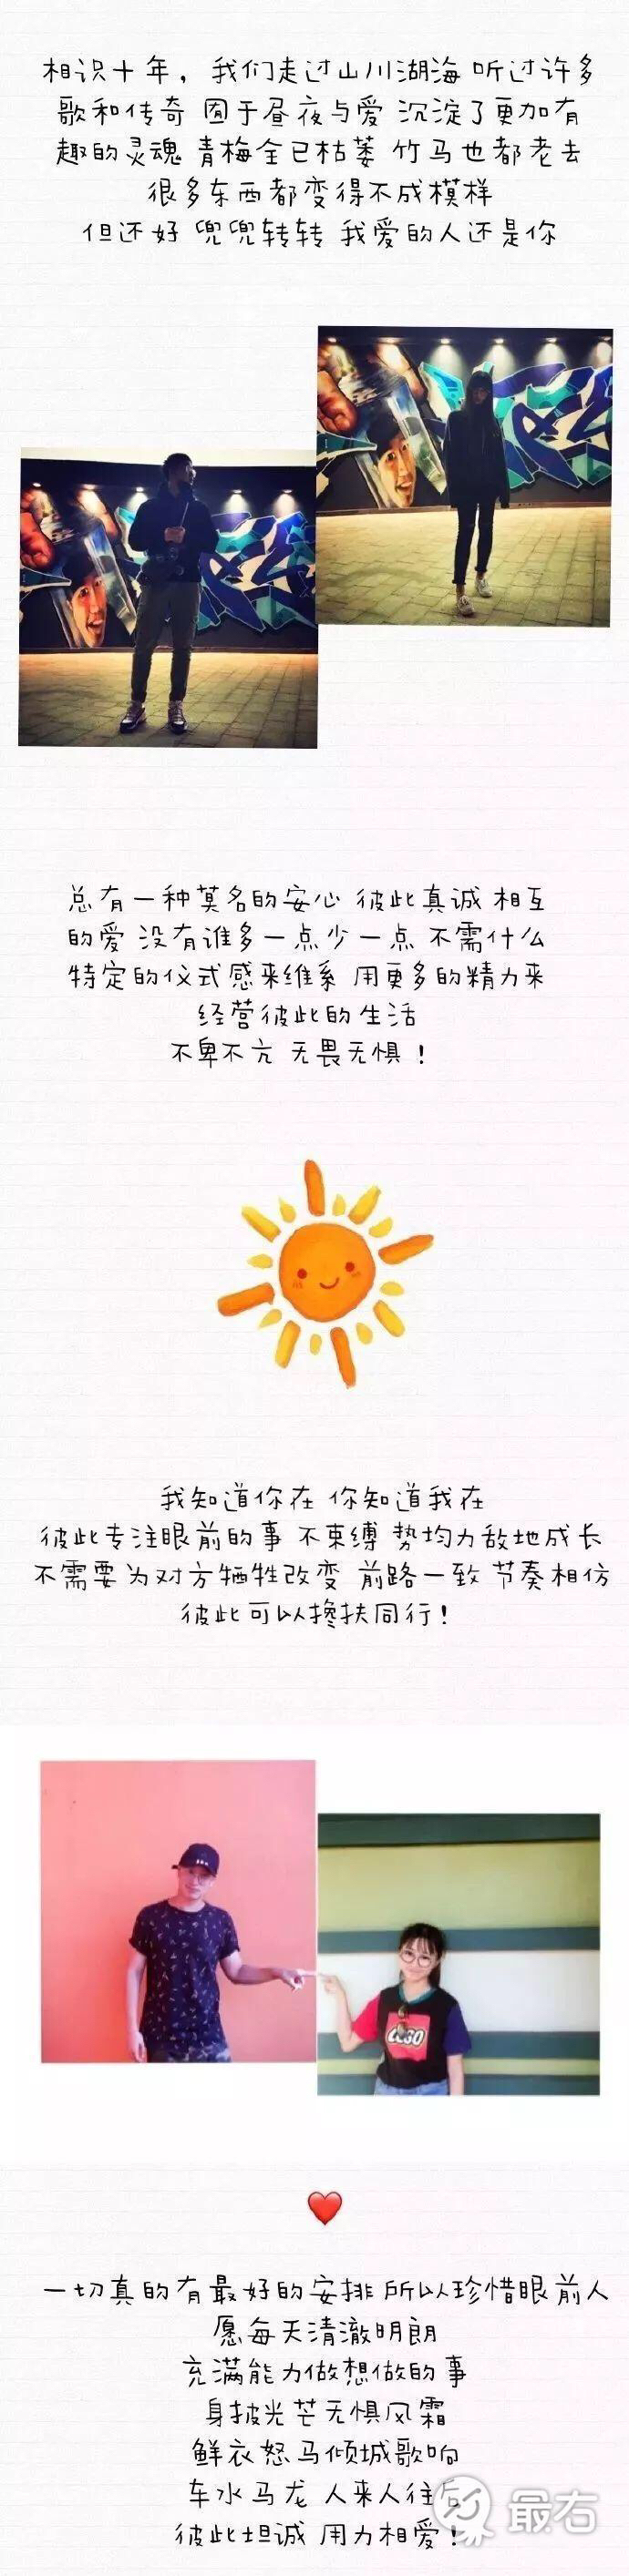 相识十年，我们走过山川湖海 听过许多
歌和传奇 囿于昼夜与爱 沉淀了更加有
趣的灵魂 青梅全已枯萎 竹马也都老去
很多东西都变得不成模样
但还好 兜兜转转 我爱的人还是你
总有一种莫名的安心 彼此真诚 相互
的爱 没有谁多一点少一点 不需什么
特定的仪式感来维系 用更多的精力来
经营彼此的生活
不卑不亢 无畏无惧！
我知道你在 你知道我在
彼此专注眼前的事 不束缚 势均力敌地成长
不需要为对方牺牲改变 前路一致 节奏相仿
彼此可以搀扶同行！
一切真的有最好的安排 所以珍惜眼前人
愿每天清澈明朗
充满能力做想做的事
身披光芒无惧风霜
鲜衣怒马倾城歌响
车水马龙 人来人往
彼此坦诚 用力相爱！
最右